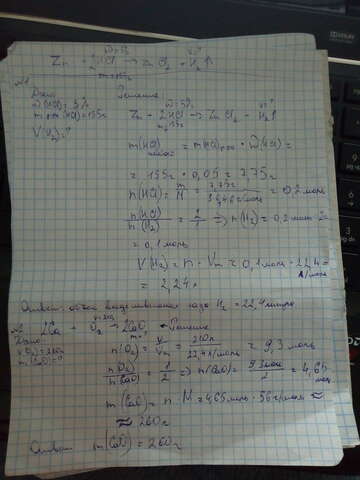 ω=5%
Zn + 2HCl → ZnCl2 + H2↑
m=155г
№1
Дано: Решение
ω(HCl) = 5%
m р-ра(HCl) = 155г
V(H2)-?
ω=5% V-?
Zn + 2HCl → ZnCl2 + H2↑
m=155г
m(HCl) = m(HCl) · ω(HCl) =
= 155г · 0,05 = 7,75г
n(HCl) = m/M = 7,75г / 36,46 г/моль = 0,2 моль
n(HCl)/n(H2) = 2/1 ⇒ n(H2) = 0,2 моль : 2 =
= 0,1 моль
V(H2) = n · Vm = 0,1 моль · 22,4 л/моль =
= 2,24л
Ответ: объем газа H2 = 22,4 литра
2Ca + O2 → 2CaO Решение
Дано:
V(O2) = 210л
m(CaO)-?
n(O2) = V/Vm = 210л / 22,4 л/моль = 9,3 моль
n(O2)/n(CaO) = 1/2 ⇒ n(CaO) = 9,3 моль/2 = 4,65 моль
m(CaO) = n · M = 4,65 моль · 56 г/моль ≈
≈ 260г
Ответ: m(CaO) = 260г